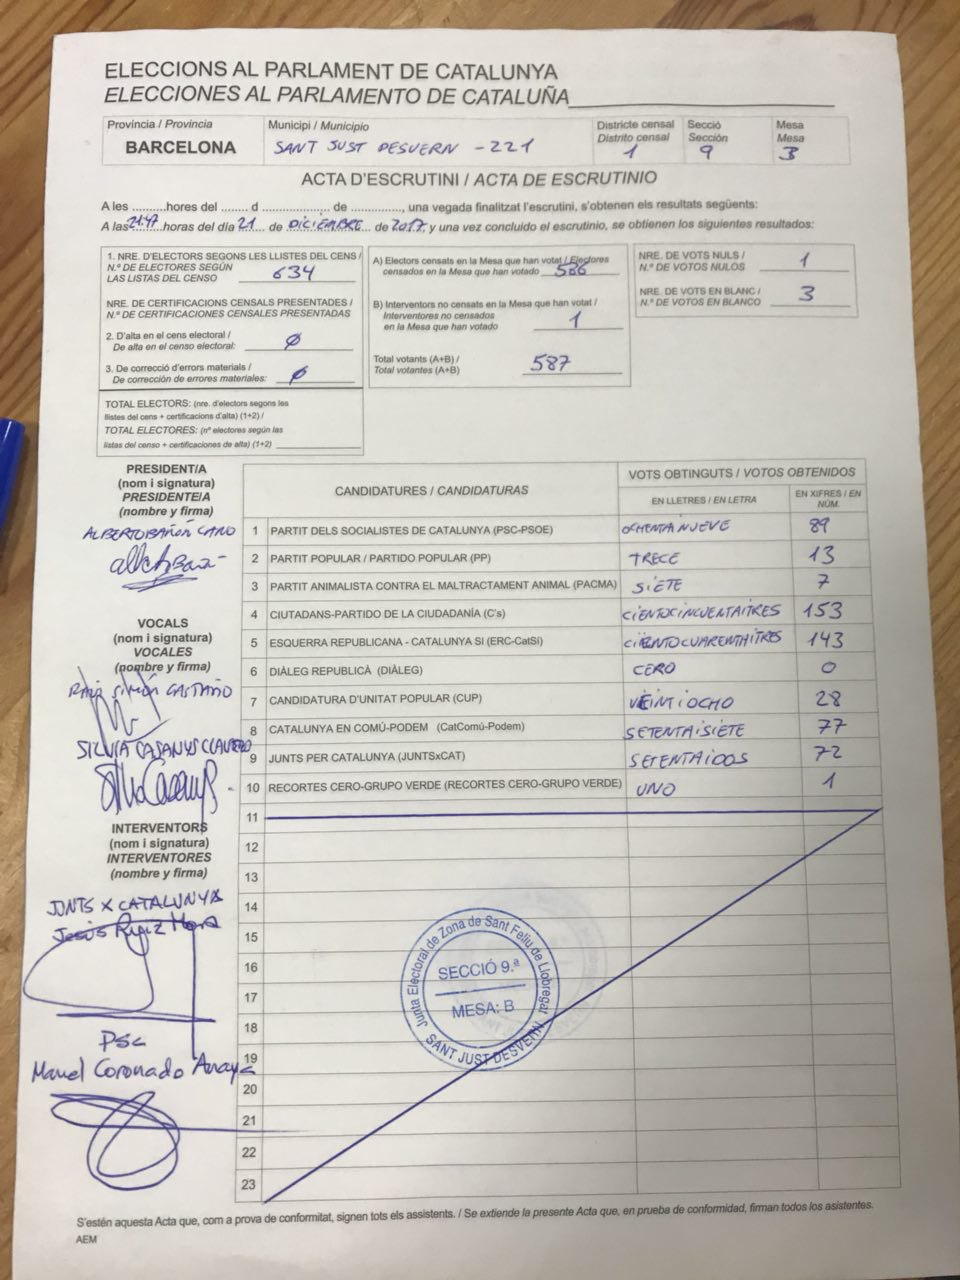 ELECCIONS AL PARLAMENT DE CATALUNYA
ELECCIONES AL PARLAMENTO DE CATALUÑA
Província / Provincia
BARCELONA
Municipi / Municipio
SANT JUST DESVERN - 221
Districte censal
Distrito censal
1
Secció
Sección
9
Mesa
Mesa
B
ACTA D'ESCRUTINI / ACTA DE ESCRUTINIO
A les ..........hores del ........ d ..................... de ............., una vegada finalitzat l'escrutini, s'obtenen els resultats següents:
A las 21:47 horas del día 21 ... de DICIEMBRE ... de 2017 y una vez concluido el escrutinio, se obtienen los siguientes resultados:
1. NRE. D'ELECTORS SEGONS LES LLISTES DEL CENS /
N.º DE ELECTORES SEGÚN
LAS LISTAS DEL CENSO 634
NRE. DE CERTIFICACIONS CENSALS PRESENTADES /
N.º DE CERTIFICACIONES CENSALES PRESENTADAS
2. D'alta en el cens electoral /
De alta en el censo electoral: Ø
3. De correcció d'errors materials /
De corrección de errores materiales: Ø
TOTAL ELECTORS: (nre. d'electors segons les
llistes del cens + certificacions d'alta) (1+2) /
TOTAL ELECTORES: (nº electores según las
listas del censo + certificaciones de alta) (1+2)
A) Electors censats en la Mesa que han votat / Electores
censados en la Mesa que han votado 586
B) Interventors no censats en la Mesa que han votat /
Interventores no censados
en la Mesa que han votado 1
Total votants (A+B) /
Total votantes (A+B) 587
NRE. DE VOTS NULS /
N.º DE VOTOS NULOS 1
NRE. DE VOTS EN BLANC /
N.º DE VOTOS EN BLANCO 3
PRESIDENT/A
(nom i signatura)
PRESIDENTE/A
(nombre y firma)
ALBERTO BAÑÓN CANO
VOCALS
(nom i signatura)
VOCALES
(nombre y firma)
SIMÓN CASTAÑO
SILVIA CASANYS CLAVERO
INTERVENTORS
(nom i signatura)
INTERVENTORES
(nombre y firma)
JUNTS X CATALUNYA
Jesús Ruiz Mora
PSC
Manel Coronado Anaya
CANDIDATURES / CANDIDATURAS
VOTS OBTINGUTS / VOTOS OBTENIDOS
EN LLETRES / EN LETRA
EN XIFRES / EN NÚM.
1 PARTIT DELS SOCIALISTES DE CATALUNYA (PSC-PSOE) OCHENTA NUEVE 89
2 PARTIT POPULAR / PARTIDO POPULAR (PP) TRECE 13
3 PARTIT ANIMALISTA CONTRA EL MALTRACTAMENT ANIMAL (PACMA) SIETE 7
4 CIUTADANS-PARTIDO DE LA CIUDADANÍA (C's) CIENTOCINCUENTAITRES 153
5 ESQUERRA REPUBLICANA - CATALUNYA SI (ERC-CatSí) CIENTOCUARENTAITRES 143
6 DIÀLEG REPUBLICÀ (DIÀLEG) CERO 0
7 CANDIDATURA D'UNITAT POPULAR (CUP) VEINTIOCHO 28
8 CATALUNYA EN COMÚ-PODEM (CatComú-Podem) SETENTAISIETE 77
9 JUNTS PER CATALUNYA (JUNTSxCAT) SETENTAIDOS 72
10 RECORTES CERO-GRUPO VERDE (RECORTES CERO-GRUPO VERDE) UNO 1
11
12
13
14
15
16
17
18
19
20
21
22
23
Junta Electoral de Zona de Sant Feliu de Llobregat
SECCIÓ 9.ª
MESA: B
SANT JUST DESVERN
S'estén aquesta Acta que, com a prova de conformitat, signen tots els assistents. / Se extiende la presente Acta que, en prueba de conformidad, firman todos los asistentes.
AEM